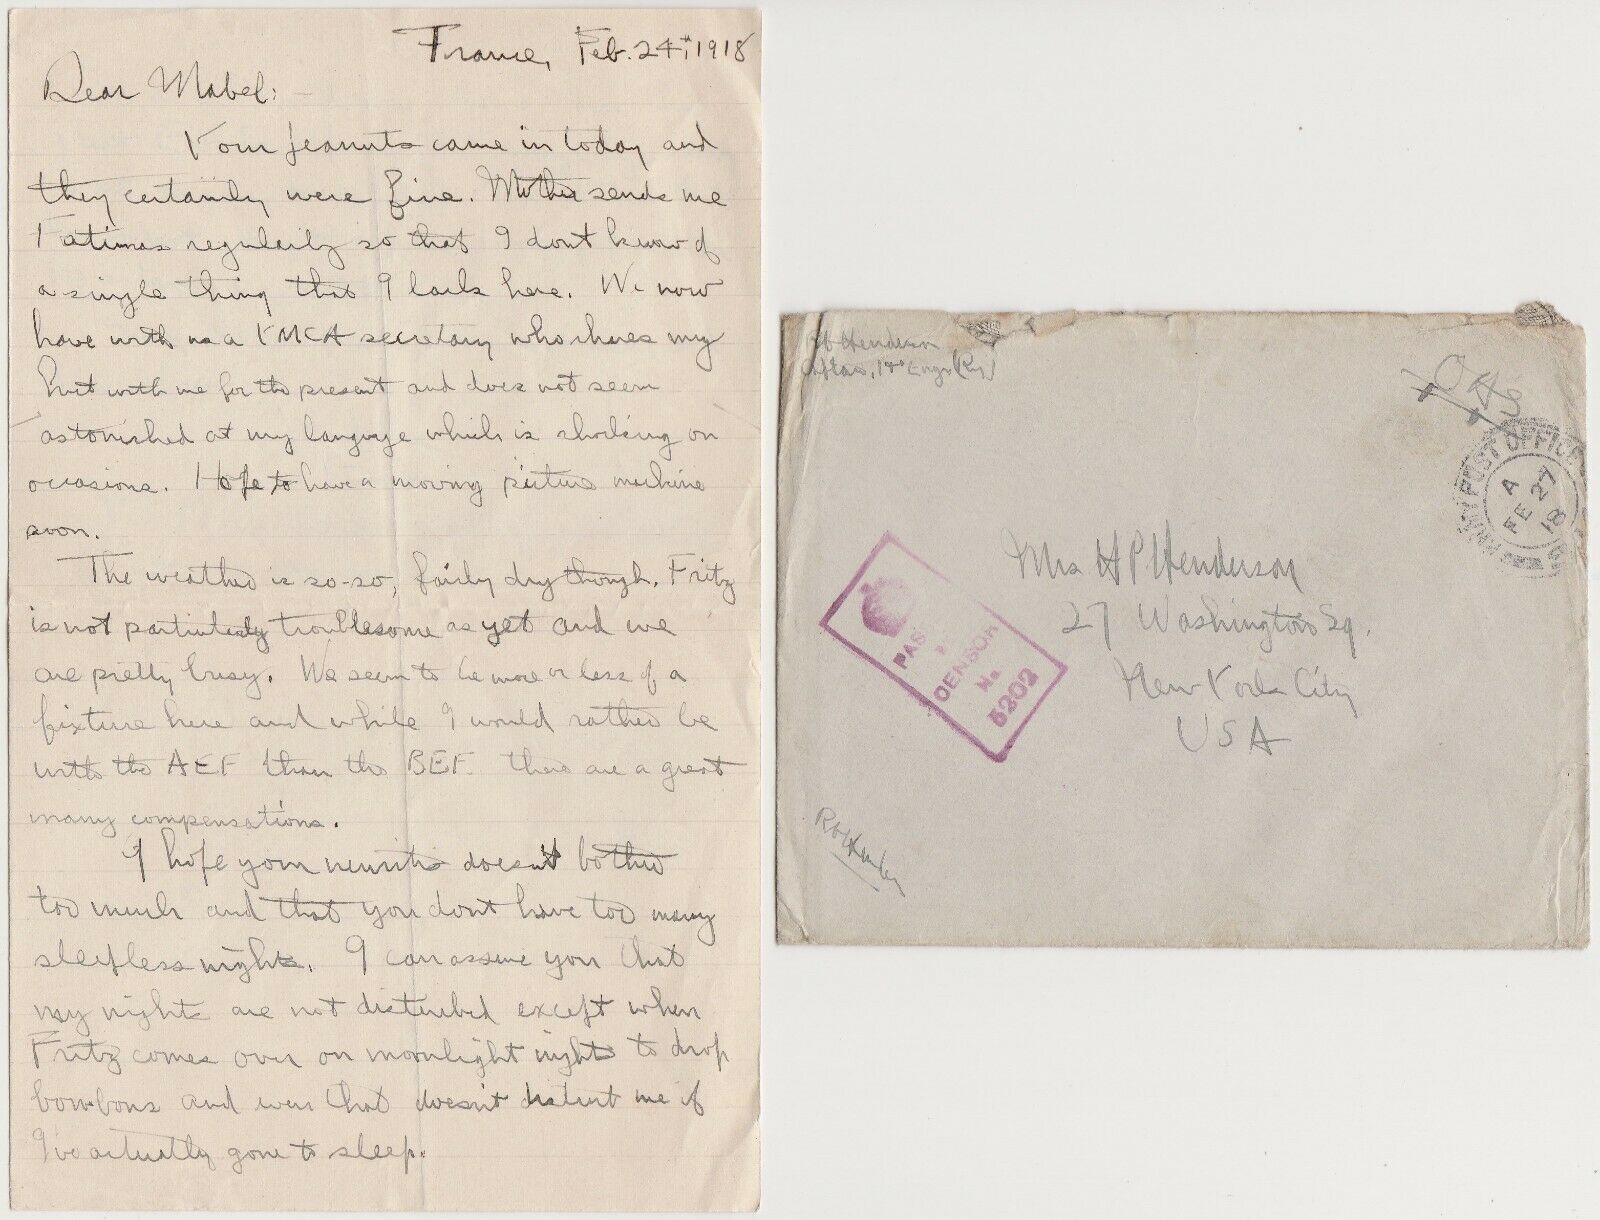 France, Feb. 24th, 1918
Dear Mabel:
Your peanuts came in today and
they certainly were fine. Mother sends me
Fatimas regularly so that I don't know of
a single thing that I lack here. We now
have with us a YMCA secretary who shares my
hut with me for the present and does not seem
astonished at my language which is shocking on
occasions. Hope to have a moving picture machine
soon.
The weather is so-so, fairly dry though. Fritz
is not particularly troublesome as yet and we
are pretty busy. We seem to be more or less of a
fixture here and while I would rather be
with the AEF than the BEF there are a great
many compensations.
I hope your neuritis doesn't bother
too much and that you don't have too many
sleepless nights. I can assure you that
my nights are not disturbed except when
Fritz comes over on moonlight nights to drop
bon-bons and even that doesn't disturb me if
I've actually gone to sleep.
Henderson
Capt 1st Engrs (Ry)
OAS
ARMY POST OFFICE
A
FE 27
18
Mrs H P Henderson
27 Washington Sq.
New York City
USA
PASSED
CENSOR
No.
5202